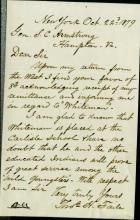 New York Oct. 22d 1879
Gen. S. C. Armstrong
Hampton Va.
Dear Sir
Upon my return from
the West I find your favor of
5th acknowledging receipt of my
remittance and referring to me
in regard to Whiteman.
I am glad to know that
Whiteman is placed at the
Carlisle School. I have no
doubt that he and the other
educated Indians will prove
of great service among the
Indians. With respect
I am Sir
Very Truly Yours